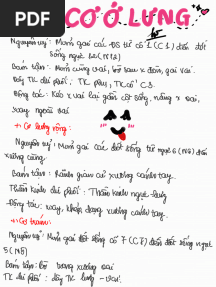 PDF
CƠ Ở LƯNG
Nguyên uỷ: Mỏm gai các ĐS từ cổ 7 (C7) đến đốt
sống ngực 12 (N12)
Bám tận: Mỏm cùng vai, bờ sau x đòn, gai vai.
Dây TK chi phối: TK phụ, TK cổ C3.
Động tác: Kéo x vai lại gần cột sống, nâng x vai,
xoay ngoài vai
→ Cơ lưng rộng:
Nguyên uỷ: Mỏm gai các đốt sống từ ngực 6 (N6) đến
xương cùng.
Bám tận: Rãnh gian củ xương cánh tay.
Thần kinh chi phối: Thần kinh ngực-lưng
Động tác: xoay, khép dạng xương cánh tay.
→ Cơ trám:
Nguyên uỷ: Mỏm gai đốt sống cổ 7 (C7) đến đốt sống ngực
5 (N5)
Bám tận: bờ trong xương vai
TK chi phối: dây TK lưng - vai.